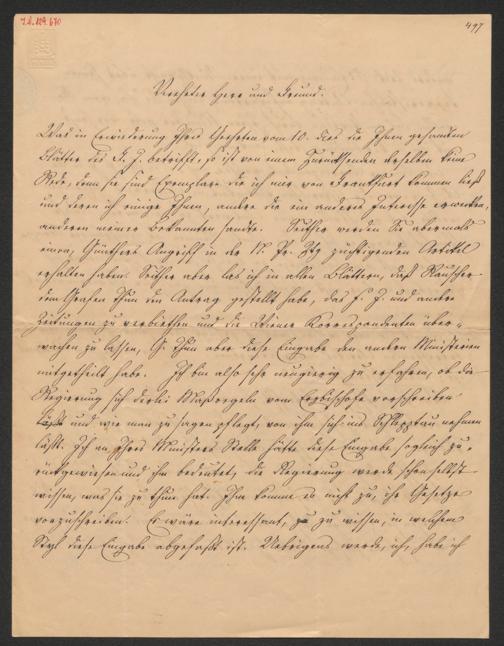 I.N. 109.670
497
Verehrter Herr und Freund.
Was in Erwiederung Ihres Geehrten vom 10. dies die Ihnen gesandten
Blätter des F. J. betrifft, so ist von einem Zurücksenden derselben keine
Rede, denn sie sind Exemplare die ich mir von Frankfurt kommen ließ
und deren ich einige Ihnen, andre die ein anderes Interesse erweckten,
anderen meiner Bekannten sandte. Seither werden Sie abermals
einen, Günthers Angriff in der N. Pr. Ztg züchtigenden Artikel
erhalten haben. Seither aber las ich in allen Blättern, daß Rauscher
dem Grafen Thun den Antrag gestellt habe, das F. J. und andre
Zeitungen zu verbiethen und die Wiener Korrespondenten über-
wachen zu lassen, G. Thun aber diese Eingabe den andern Ministerien
mitgetheilt habe. Ich bin also sehr neugierig zu erfahren, ob die
Regierung sich derlei Maßregeln vom Erzbischofe vorschreiben
läßt und wie man zu sagen pflegt, von ihm sich ins Schlepptau nehmen
läßt. Ich an Ihres Ministers Stelle hätte diese Eingabe sogleich zu-
rückgewiesen und ihm bedeutet, die Regierung werde schon selbst
wissen, was sie zu thun hat. Ihm komme es nicht zu, ihr Gesetze
vorzuschreiben. Es wäre interessant, zu wissen, in welchem
Styl diese Eingabe abgefaßt ist. Uebrigens werde, ich, habe ich